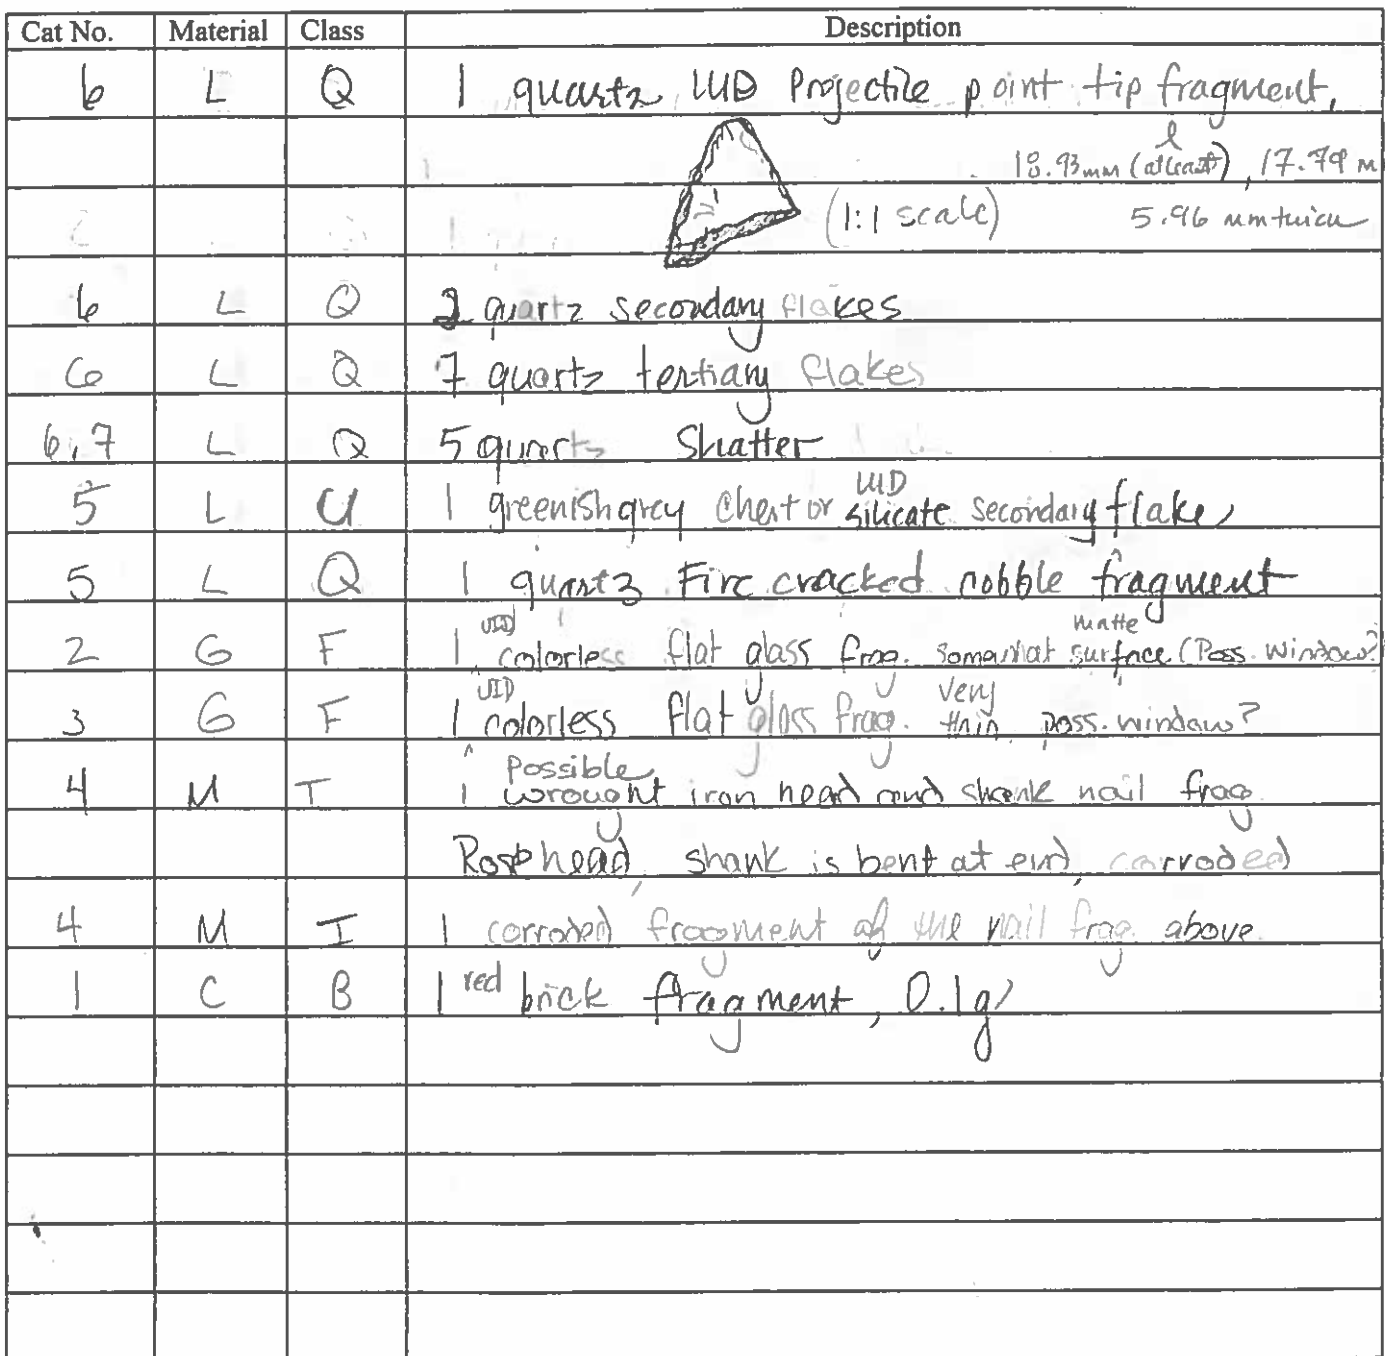 Cat No. Material Class Description
6 L Q 1 quartz UID Projectile point tip fragment,
l
18.93mm (at least), 17.79 m
(1:1 scale) 5.96 mm thick
6 L Q 2 quartz secondary flakes
6 L Q 7 quartz tertiary flakes
6,7 L Q 5 quartz Shatter
UID
5 L U 1 greenish grey Chert or silicate secondary flake
5 L Q 1 quartz Fire cracked cobble fragment
UID matte
2 G F 1 colorless flat glass frag. somewhat surface (Poss. Window?
UID very
3 G F 1 colorless flat glass frag. thin poss. window?
Possible
4 M I 1 wrought iron head and shank nail frag
Rosehead, shank is bent at end, corroded
4 M I 1 corroded fragment of the nail frag. above
1 C B 1 red brick fragment, 0.1g